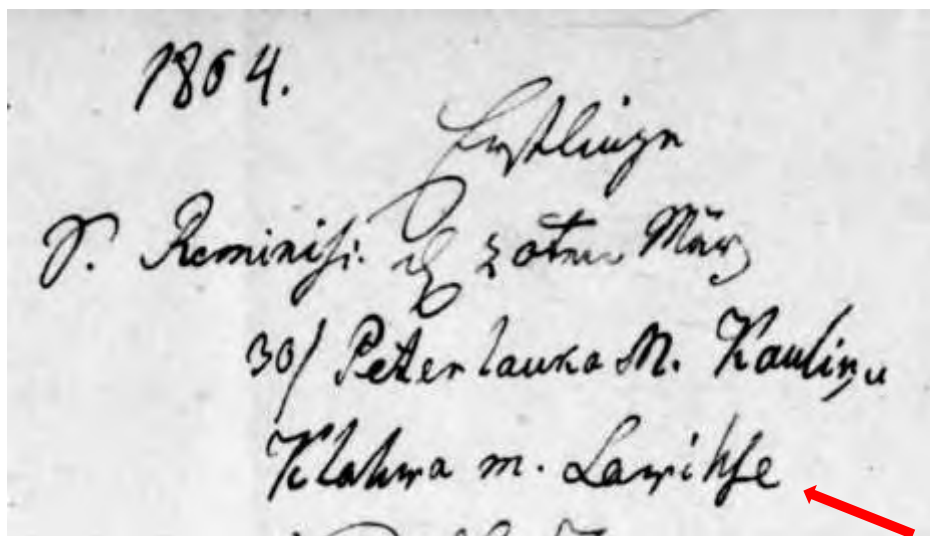 1864.
Erstlinge
D. Reminisc: d. 20ten März
30/ Peterlauka M. Kauliņu
Klahwa m. Lawihse